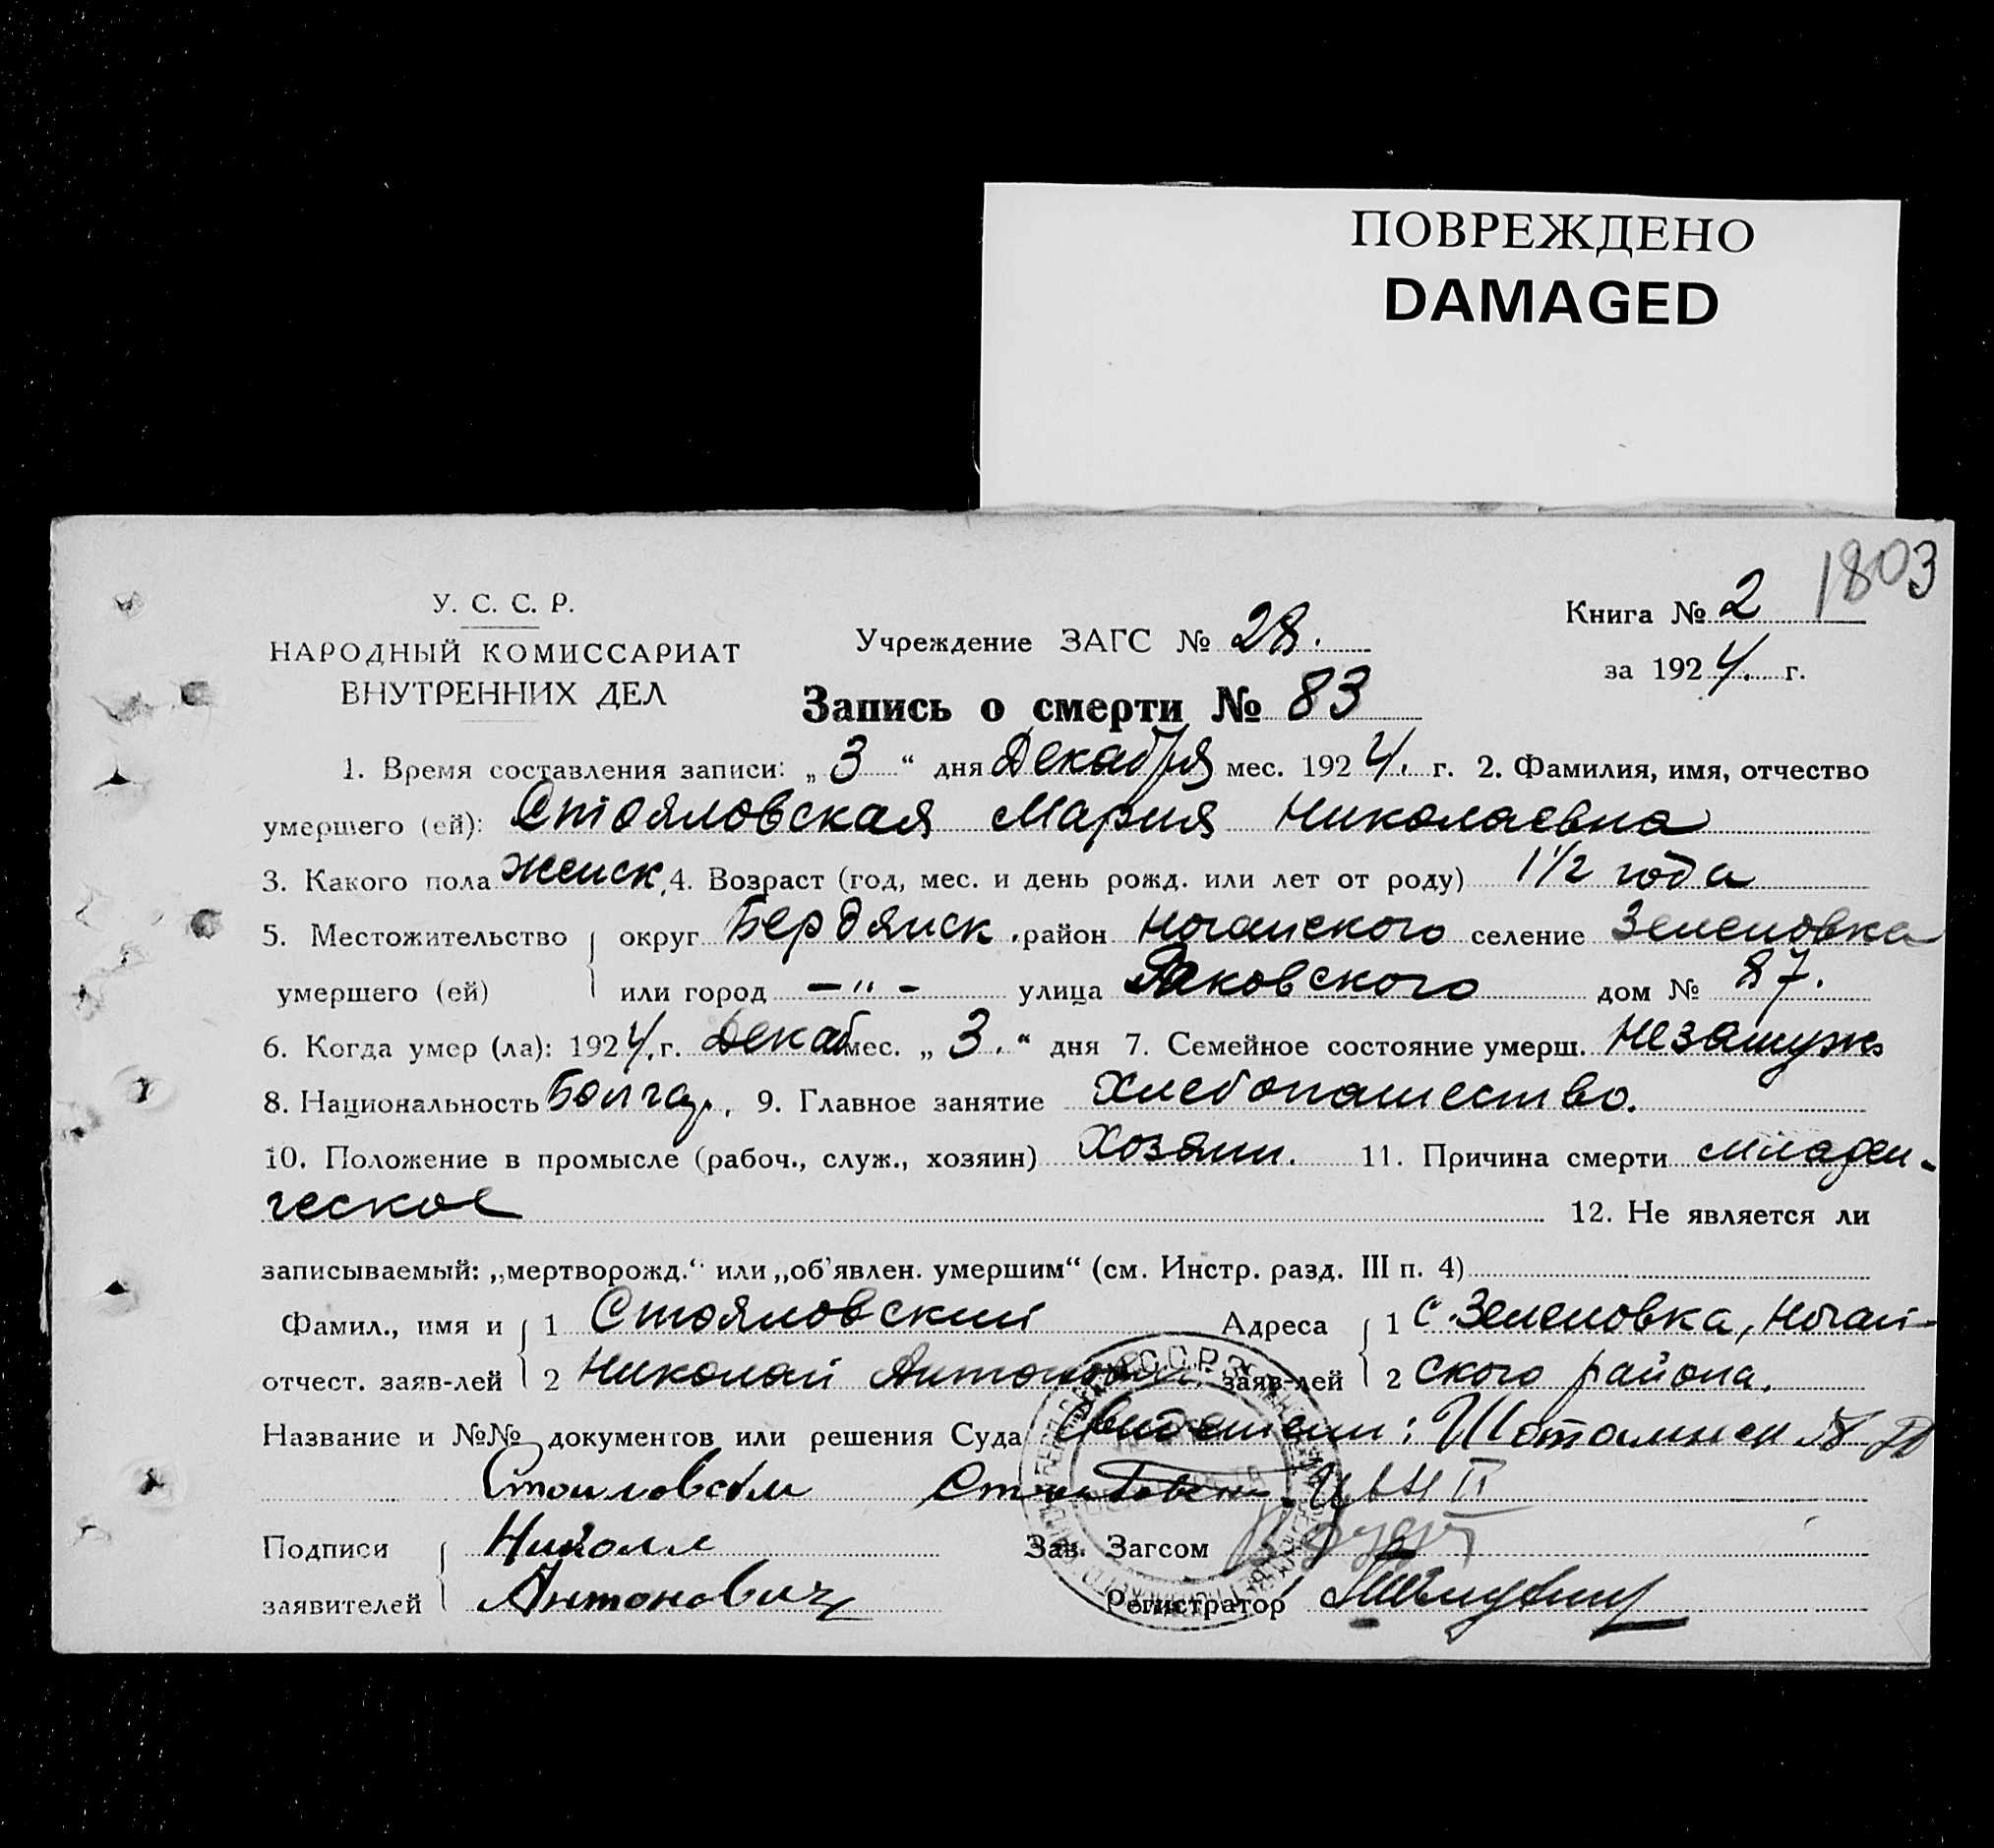 ПОВРЕЖДЕНО
DAMAGED
1803
У. С. С. Р.
НАРОДНЫЙ КОМИССАРИАТ
ВНУТРЕННИХ ДЕЛ
Учреждение ЗАГС № 28.
Книга № 2
за 1924. г.
Запись о смерти № 83
1. Время составления записи: „3“ дня Декабря мес. 1924. г. 2. Фамилия, имя, отчество
умершего (ей): Стояловская Мария Николаевна
3. Какого пола женск. 4. Возраст (год, мес. и день рожд. или лет от роду) 1 1/2 года
5. Местожительство округ Бердянск. район Ногайского селение Зеленовка
умершего (ей) или город –"– улица Раковского дом № 87.
6. Когда умер (ла): 1924. г. Декаб мес. „3.“ дня 7. Семейное состояние умерш. Незамуж
8. Национальность Болгар., 9. Главное занятие Хлебопашество.
10. Положение в промысле (рабоч., служ., хозяин) Хозяин. 11. Причина смерти младен-
ческое 12. Не является ли
записываемый: „мертворожд.“ или „об'явлен. умершим“ (см. Инстр. разд. III п. 4)
Фамил., имя и 1 Стояловский Адреса 1 с. Зеленовка, Ногай-
отчест. заяв-лей 2 Николай Антонович заяв-лей 2 ского района.
Название и №№ документов или решения Суда
Подписи Николе Зав. Загсом
заявителей Антонович Регистратор